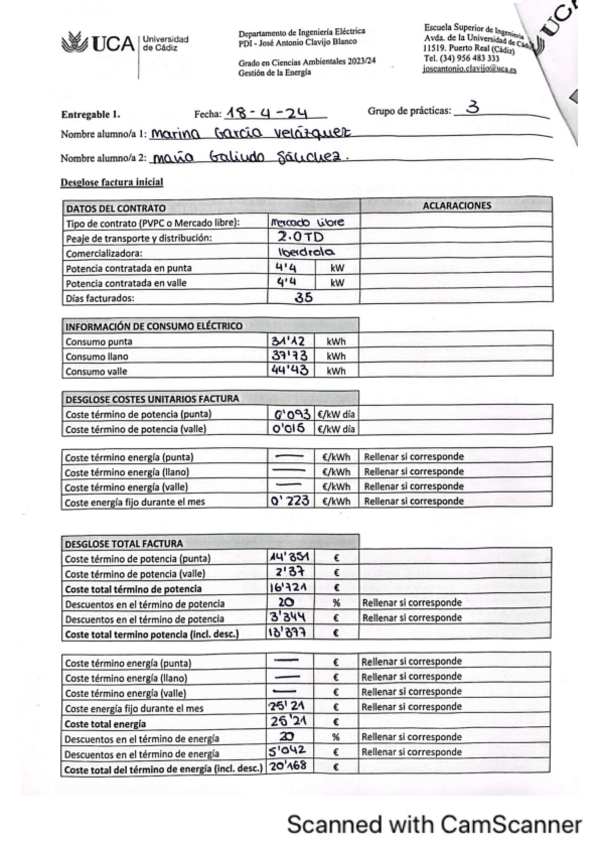 UCA Universidad de Cádiz
Departamento de Ingeniería Eléctrica
PDI - José Antonio Clavijo Blanco
Grado en Ciencias Ambientales 2023/24
Gestión de la Energía
Escuela Superior de Ingeniería
Avda. de la Universidad de Cádiz
11519. Puerto Real (Cádiz)
Tel. (34) 956 483 333
joscantonio.clavijo@uca.es
UC
Entregable 1. Fecha: 18-4-24 Grupo de prácticas: 3
Nombre alumno/a 1: Marina García Velázquez
Nombre alumno/a 2: María Galindo Sánchez.
Desglose factura inicial
DATOS DEL CONTRATO ACLARACIONES
Tipo de contrato (PVPC o Mercado libre): Mercado libre
Peaje de transporte y distribución: 2.0TD
Comercializadora: Iberdrola
Potencia contratada en punta 4'4 kW
Potencia contratada en valle 4'4 kW
Días facturados: 35
INFORMACIÓN DE CONSUMO ELÉCTRICO
Consumo punta 31'12 kWh
Consumo llano 37'73 kWh
Consumo valle 44'43 kWh
DESGLOSE COSTES UNITARIOS FACTURA
Coste término de potencia (punta) 0'093 €/kW día
Coste término de potencia (valle) 0'015 €/kW día
Coste término energía (punta) — €/kWh Rellenar si corresponde
Coste término energía (llano) — €/kWh Rellenar si corresponde
Coste término energía (valle) — €/kWh Rellenar si corresponde
Coste energía fijo durante el mes 0'223 €/kWh Rellenar si corresponde
DESGLOSE TOTAL FACTURA
Coste término de potencia (punta) 14'351 €
Coste término de potencia (valle) 2'37 €
Coste total término de potencia 16'721 €
Descuentos en el término de potencia 20 % Rellenar si corresponde
Descuentos en el término de potencia 3'344 € Rellenar si corresponde
Coste total termino potencia (incl. desc.) 13'377 €
Coste término energía (punta) — € Rellenar si corresponde
Coste término energía (llano) — € Rellenar si corresponde
Coste término energía (valle) — € Rellenar si corresponde
Coste energía fijo durante el mes 25'21 € Rellenar si corresponde
Coste total energía 25'21 €
Descuentos en el término de energía 20 % Rellenar si corresponde
Descuentos en el término de energía 5'042 € Rellenar si corresponde
Coste total del término de energía (incl. desc.) 20'168 €
Scanned with CamScanner